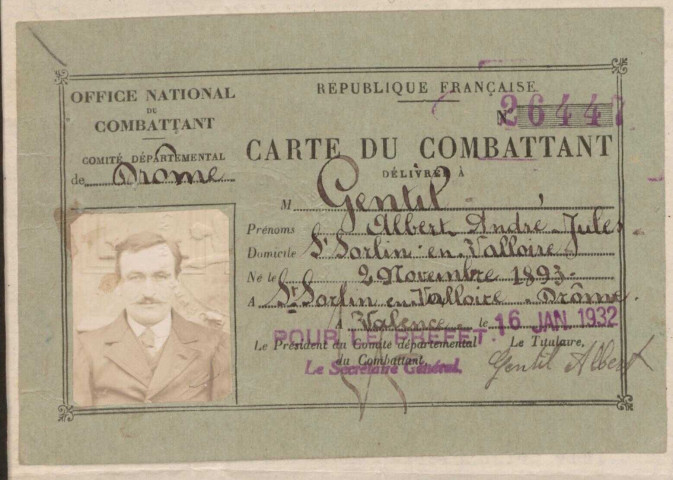 OFFICE NATIONAL
DU
COMBATTANT
COMITÉ DÉPARTEMENTAL
de Drôme
RÉPUBLIQUE FRANÇAISE
N° 26447
CARTE DU COMBATTANT
DÉLIVRÉE À
M Gentil
Prénoms Albert André Jules
Domicile St Sorlin en Valloire
Né le 2 Novembre 1893
A St Sorlin en Valloire Drôme
A Valence le 16 JAN. 1932
POUR LE PRÉFET.
Le Président du Comité départemental
du Combattant,
Le Secrétaire Général.
Le Titulaire,
Gentil Albert